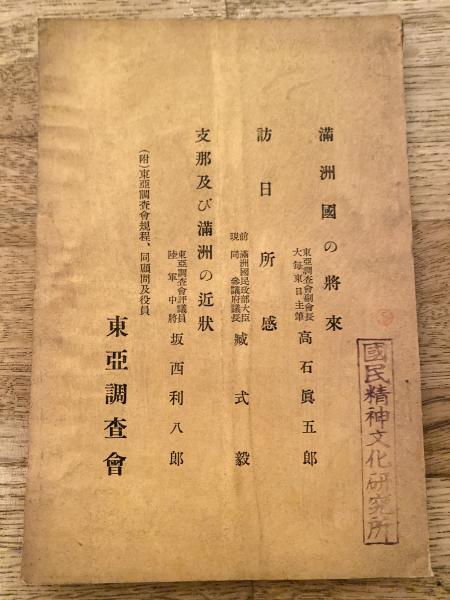 國民精神文化研究所
滿洲國の將來
東亞調査會副會長
大每東日主筆
高石眞五郎
訪日所感
前 滿洲國民政部大臣
現 同 參議府議長
臧式毅
支那及び滿洲の近狀
東亞調査會評議員
陸軍中將
坂西利八郎
(附)東亞調査會規程、同顧問及役員
東亞調査會